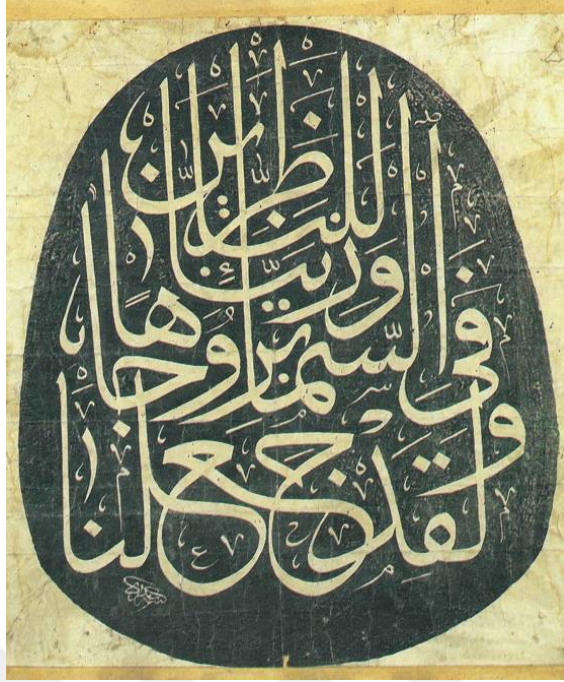 ولقد جعلنا
في السماء بروجا
وزيناها
للناظرين